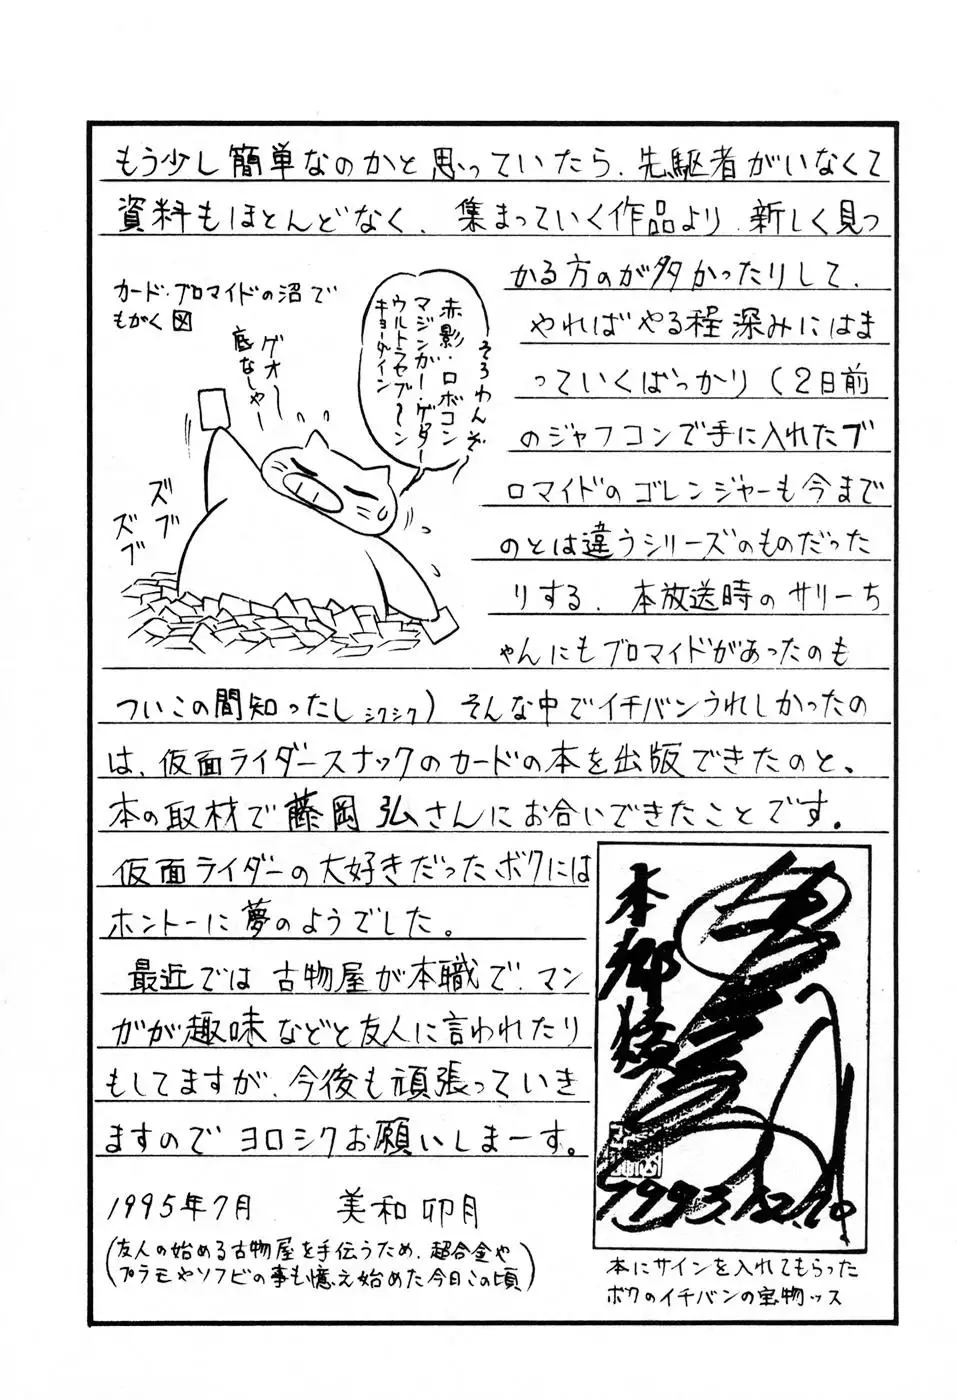 もう少し簡単なのかと思っていたら、先駆者がいなくて
資料もほとんどなく、集まっていく作品より、新しく見つ
かる方のが多かったりして、
やればやる程深みにはま
っていくばっかり(2日前
のジャフコンで手に入れたブ
ロマイドのゴレンジャーも今まで
のとは違うシリーズのものだった
りする、本放送時のサリーち
ゃんにもブロマイドがあったのも
ついこの間知ったし シクシク)そんな中でイチバンうれしかったの
は、仮面ライダースナックのカードの本を出版できたのと、
本の取材で藤岡弘さんにお合いできたことです。
仮面ライダーの大好きだったボクには
ホントーに夢のようでした。
最近では古物屋が本職で、マン
ガが趣味などと友人に言われたり
もしてますが、今後も頑張っていき
ますのでヨロシクお願いしまーす。
1995年7月 美和卯月
(友人の始める古物屋を手伝うため、超合金や
プラモやソフビの事も憶え始めた今日この頃)
カード・ブロマイドの沼で
もがく図
そろわんぞ〜
赤影・ロボコン
マジンガー・ゲッター
ウルトラセブ〜ン
キョーダイン
ゲオ〜
底なしゃー
ズブ
ズブ
本郷猛
1993.12.
本にサインを入れてもらった
ボクのイチバンの宝物ッス